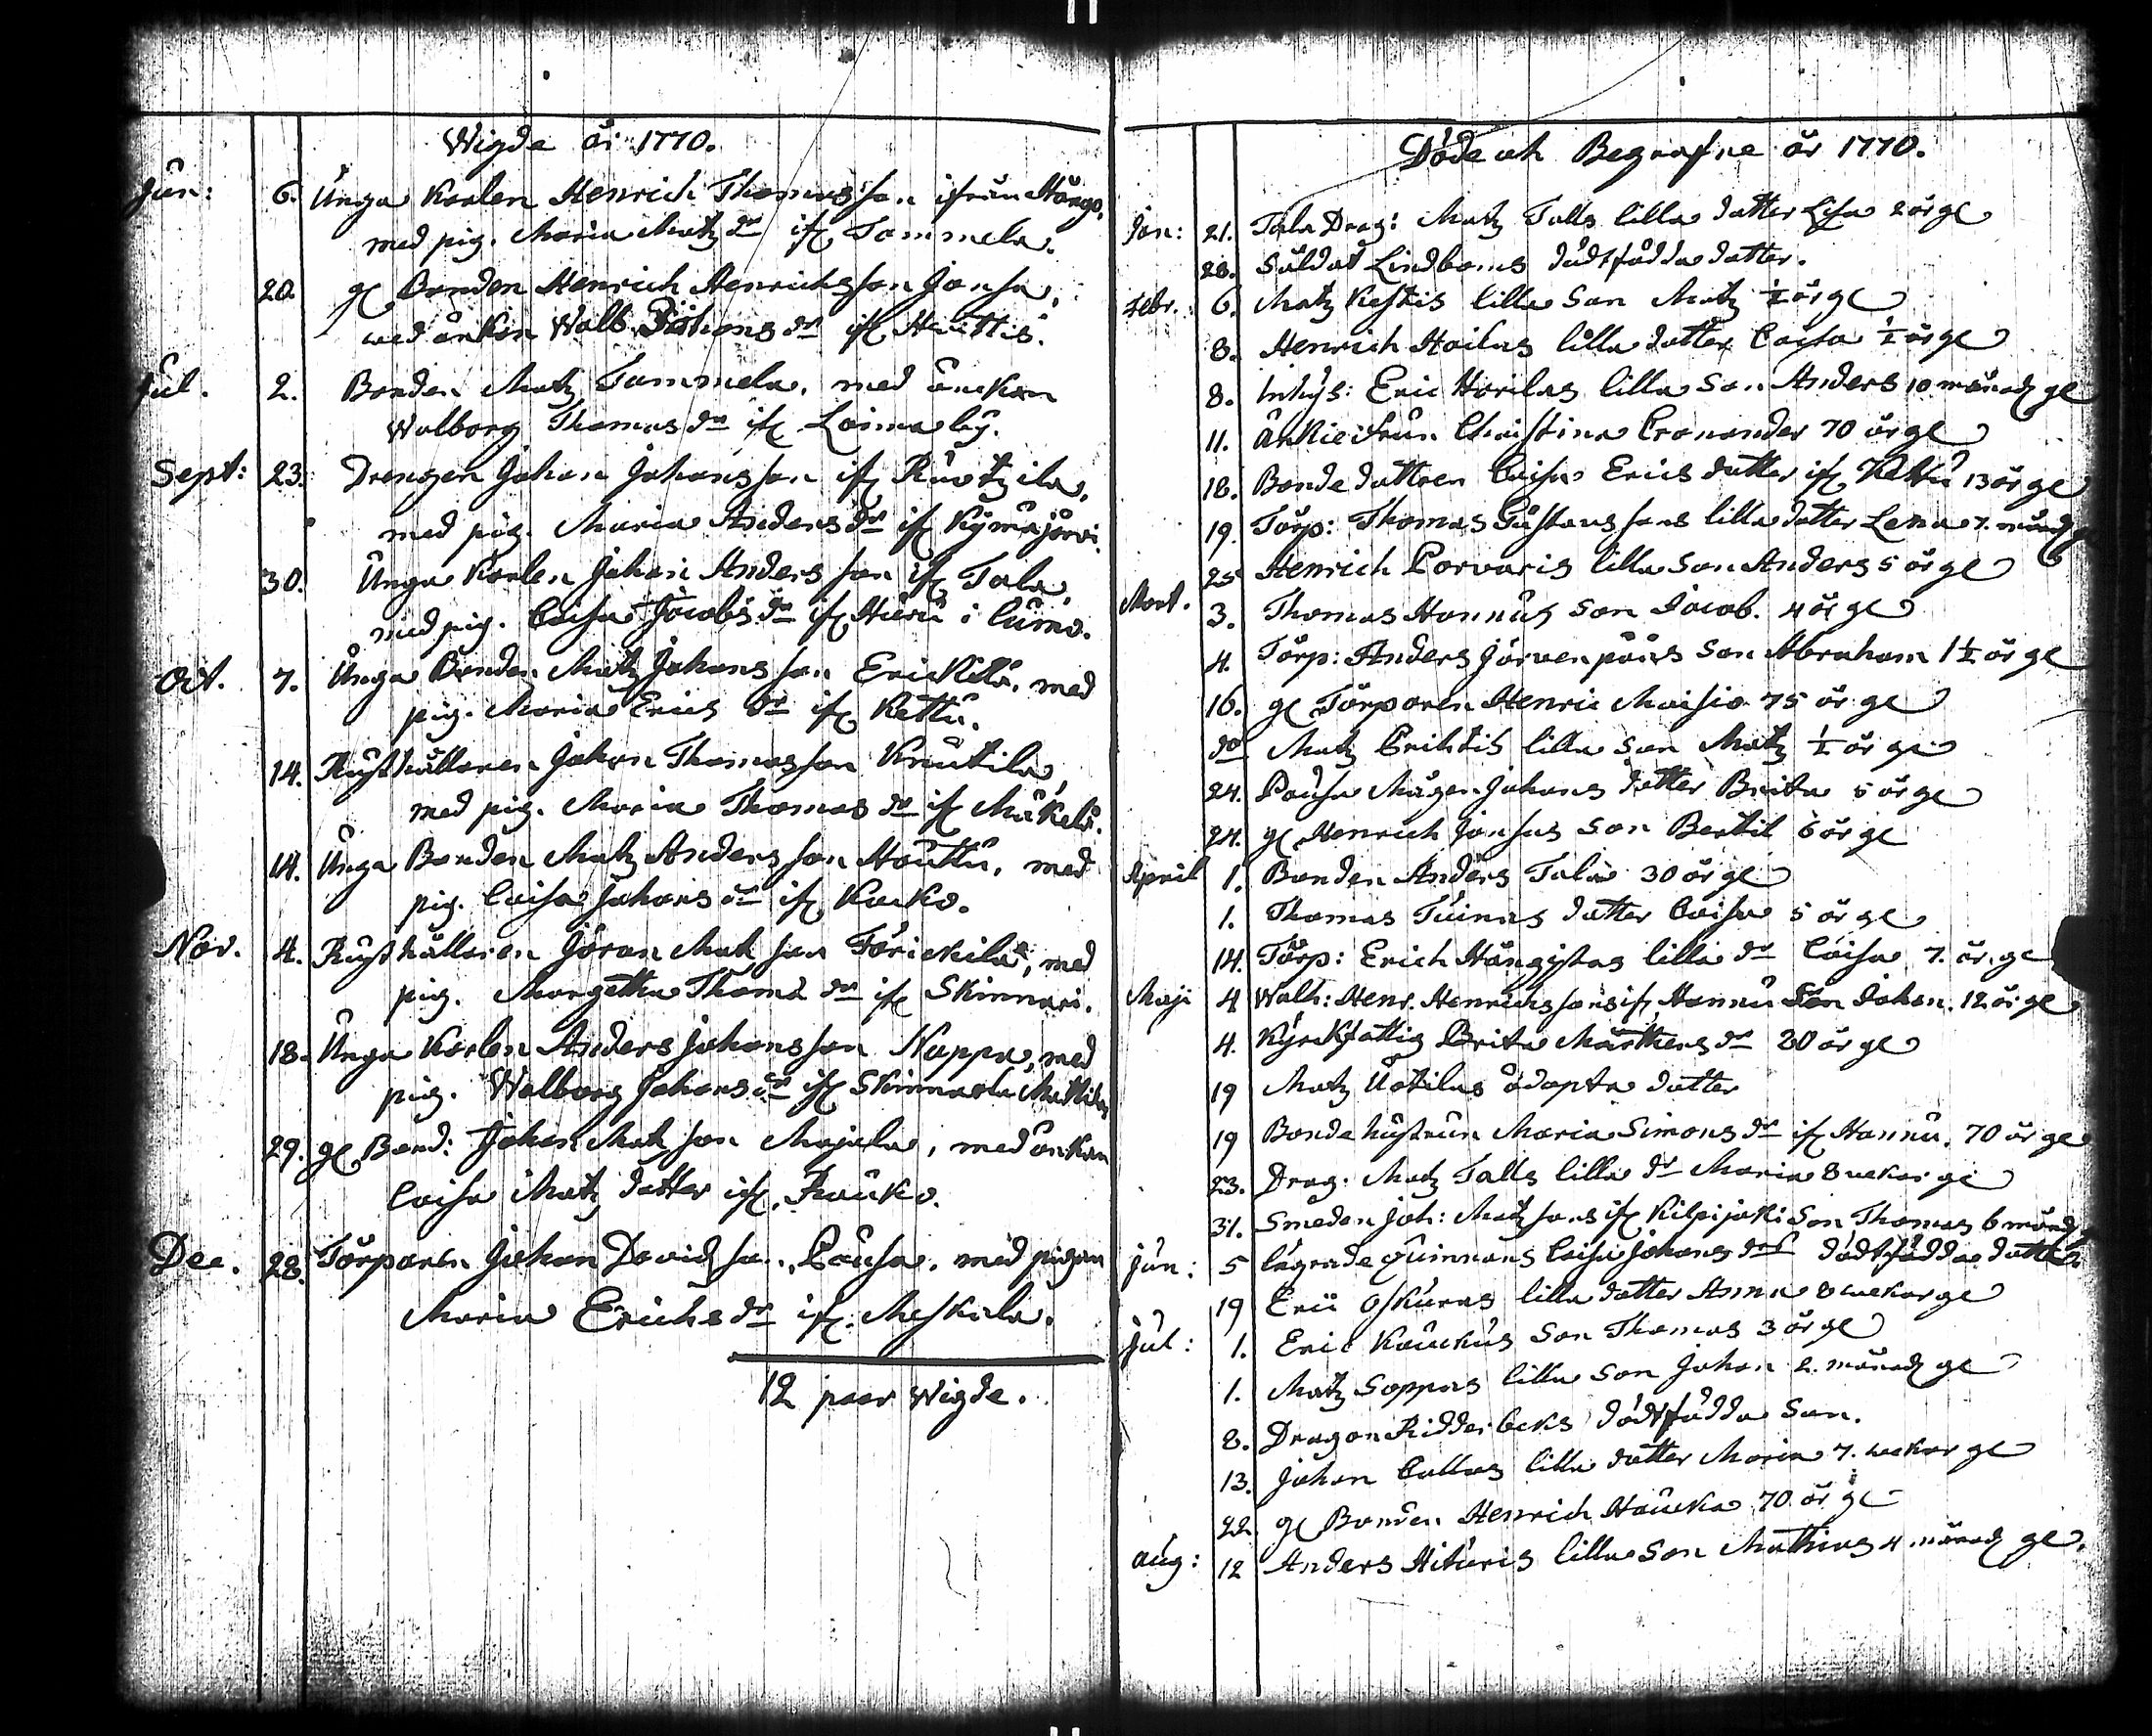 Wigde år 1770.
Jun: 6. Unga Karlen Henrich Thomasson ifrån Hångo,
med pig. Maria Matz dr if Tommela.
20. gl Bonden Henrich Henrichsson Jonsa,
med änkan Walb. Johans dr if Huittis.
Jul. 2. Bonden Matz Tammela, med änckan
Walborg Thomas dr if Loimaby.
Sept: 23. Drengen Johan Johansson if Ruotzila,
med pig. Maria Anders dr if Kymäjärvi.
30. Unga Karlen Johan Andersson if Tala,
med pig. Caisa Jacobs dr if Hieru i Lumo.
Oct. 7. Unga Bonden Matz Johansson Erickilä, med
pig. Maria Erics dr if Kettu.
14. Rusthållaren Johan Thomasson Knuutila,
med pig. Maria Thomas dr if Mäkelä.
14. Unga Bonden Matz Andersson Houttu, med
pig. Caisa Johans dr if Karko.
Nov. 4. Rusthållaren Jöran Matsson Förickilä, med
pig. Margetha Thoma dr if Skinnari.
18. Unga Karlen Anders Johansson Nappa, med
pig. Walborg Johans dr if Skinnarla Mattila
29. gl Bond: Johan Matsson Majala, med änkan
Caisa Matz dotter if Kauko.
Dec. 28. Torparen Johan Davidsson Pausa, med pigan
Maria Erichs dr if Meskala.
12 paar Wigde.
Döde och Begrafne år 1770.
Jan: 21. Tala Drag: Matz Talls lilla dotter Lisa 2 år gl
28. Soldat Lindboms dödfödda dotter.
Febr.: 6. Matz Kestis lilla Son Matz ½ år gl
8. Henrich Hoilas lilla dotter Caisa ½ år gl
8. Inhys: Eric Horilas lilla Son Anders 10 månad gl
11. Änkiefrun Christina Cronander 70 år gl
18. Bonde dottren Caisa Erics dotter if Kettu 13 år gl
19. Torp: Thomas Gustafssons lilla dotter Lena 7. månad
25 Henrich Porvaris lilla Son Anders 5 år gl
Mart. 3. Thomas Hannus Son Jacob. 4 år gl
4. Torp: Anders Järvenpääs Son Abraham 1½ år gl
16. gl Torparen Henric Maisio 75 år gl
do Matz Prihtis lilla Son Matz ½ år gl
24. Pausa Mågen Johans dotter Brita 5 år gl
24. gl Henrich Jonsas Son Bertil 6 år gl
April 1. Bonden Anders Tala 30 år gl
1. Thomas Tuinas dotter Caisa 5 år gl
14. Torp: Erich Hångistas lilla dr Caisa 7. år gl
Maji 4 Walh: Henr. Henrichssons if Hannu Son Johan. 12 år gl
4. Kyrckfattig Brita Mårthens dr 80 år gl
19 Matz Uotilas ådöpta dotter
19 Bonde hustrun Maria Simons dr if Hannu. 70 år gl
23. Drag. Matz Talls lilla dr Maria 8 wekor gl
31. Smeden Joh: Matssons if Kilpijoki Son Thomas 6 månad
Jun: 5 lägrade quinnans Caisa Johans drs dödfödda dotter.
19 Eric Oskuras lilla dotter Anna 8 wekor gl
Jul: 1. Eric Kauckus Son Thomas 3 år gl
1. Matz Soppas lilla Son Johan 2. månad gl
8. Dragon Ridderbecks dödfödda Son.
13. Johan Callas lilla dotter Maria 7. wekor gl
22. gl Bonden Henrich Haucka 70 år gl
Aug: 12 Anders Hituris lilla Son Mathias 4 månad gl.